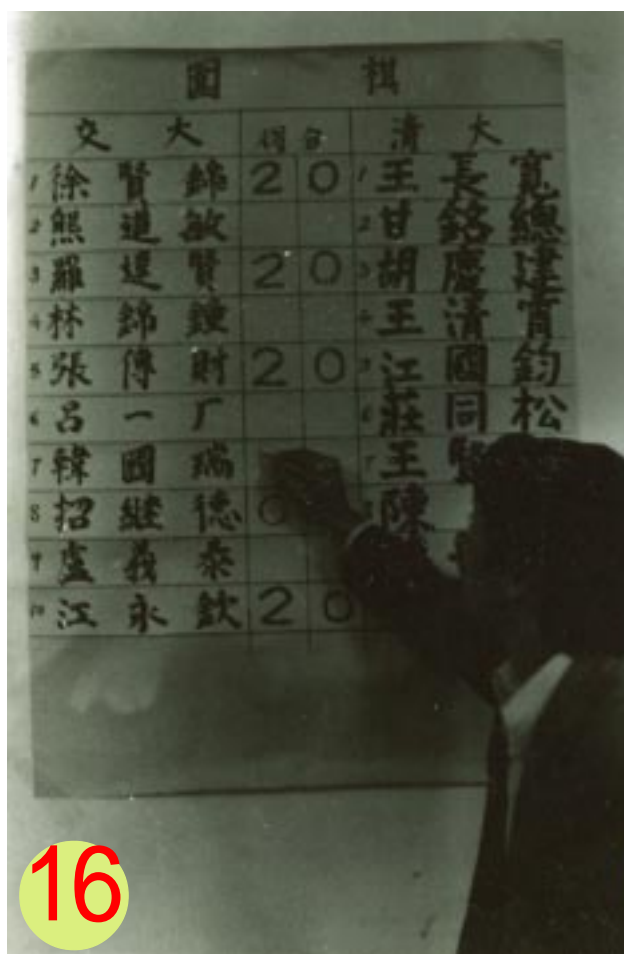 圍棋
交大 得分 清大
1 徐賢錦 2 0 1 王長寬
2 熊進敏 2 甘銘總
3 羅運賢 2 0 3 胡慶建
4 林錦鍾 4 王清霄
5 張傳財 2 0 5 江國鈞
6 呂一厂 6 莊同松
7 韓國瑞 7 王賢
8 招繼德 0 陳
9 盧義泰
10 江永欽 2 0
16